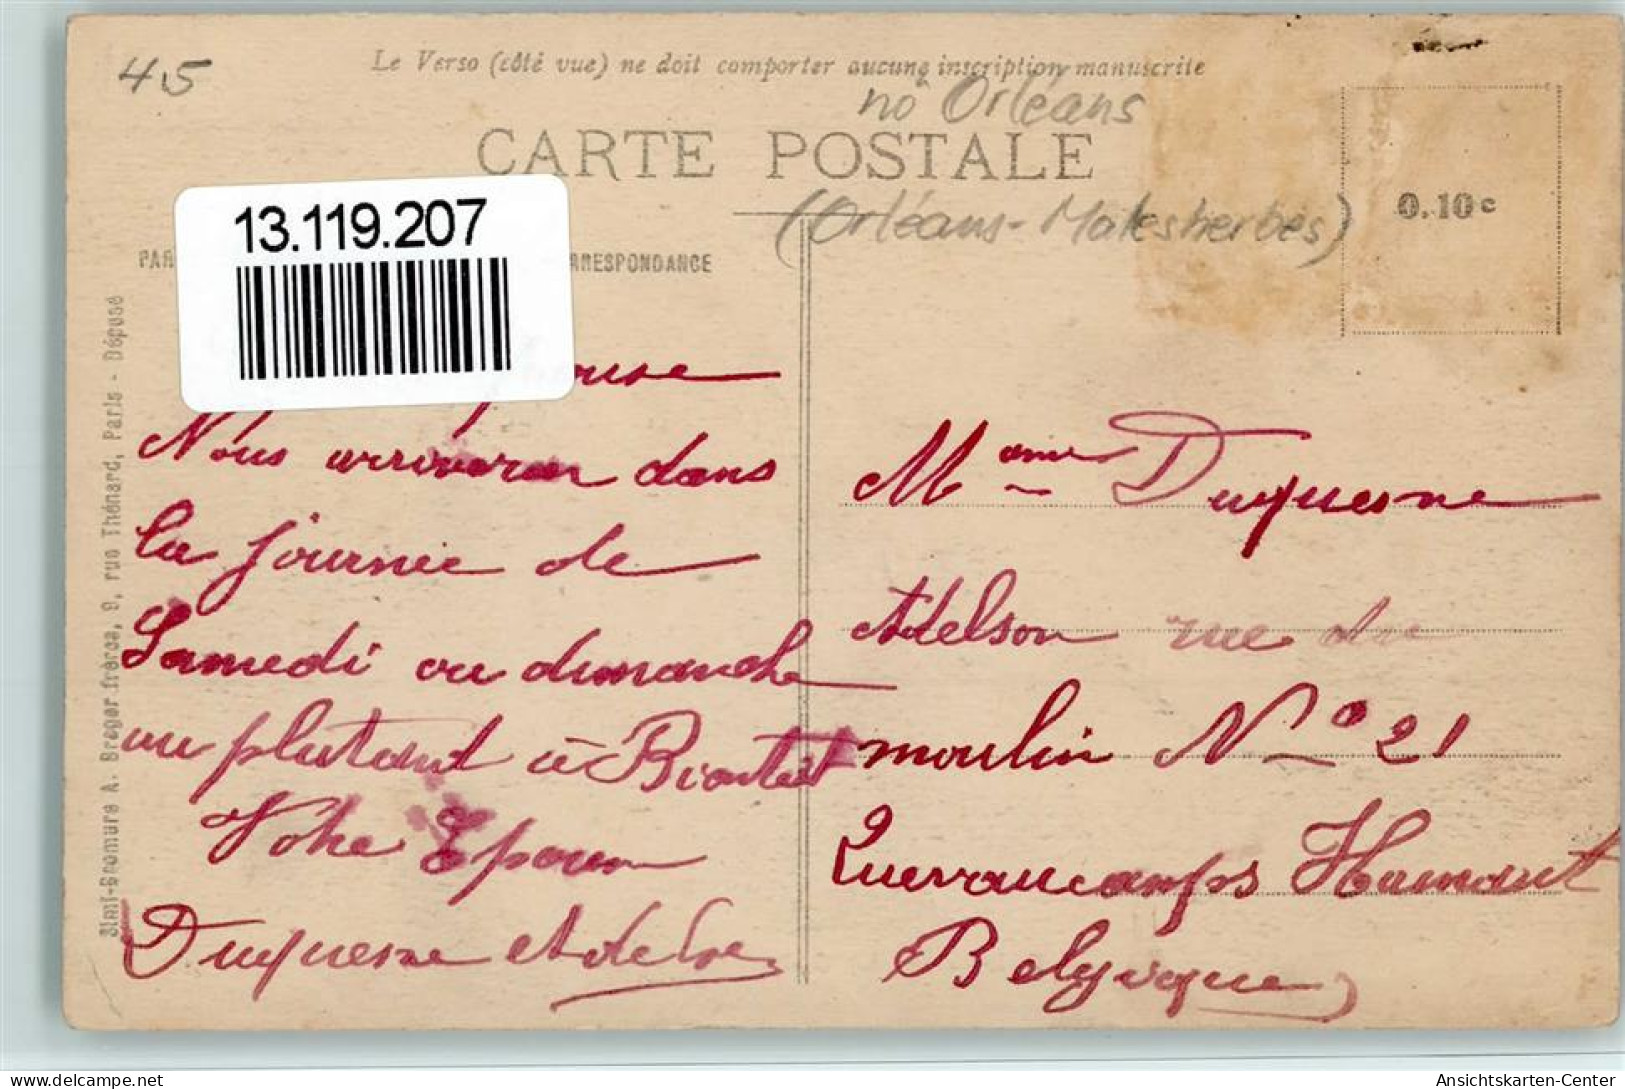 45
Le Verso (côté vue) ne doit comporter aucune inscription manuscrite
no Orléans
CARTE POSTALE
(Orléans-Malesherbes)
0.10 c
13.119.207
PAR
RRESPONDANCE
Simi-Bromure A. Breger frères, 9, rue Thénard, Paris - Déposé
Nous arriveron dans
la journée de
Samedi ou dimanche
au plutard à
Votre Epoux
Duquesne Adelson
Mame Duquesne
Adelson rue du
moulin No 21
Quevaucamps Hainaut
Belgique
Ansichtskarten-Center